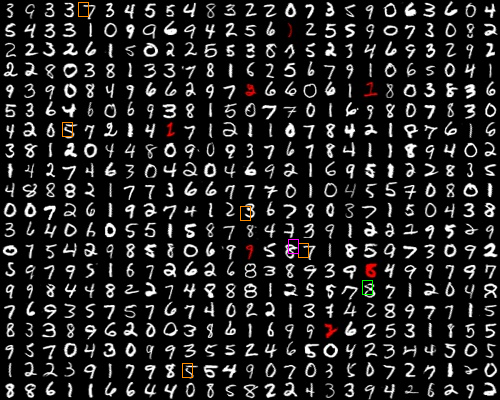 3 9 3 3 7 3 4 5 5 4 8 3 2 2 0 7 3 5 9 0 6 3 6 0 4
5 4 3 3 1 0 9 9 6 9 4 2 5 6 ) 2 5 5 9 0 7 3 0 8 2
2 2 3 2 6 1 5 0 2 2 5 5 3 8 1 5 2 3 4 6 9 3 2 9 2
2 2 8 0 3 8 1 3 3 7 8 1 6 2 5 6 7 9 1 0 6 5 0 4 1
9 3 9 0 8 4 9 6 6 2 9 7 3 6 6 0 6 1 1 8 0 3 8 3 6
5 3 6 4 6 0 6 9 3 8 1 5 0 7 7 0 1 6 9 8 0 7 8 3 0
4 2 0 5 7 2 1 4 1 7 1 2 1 1 0 7 8 4 2 1 8 7 6 1 6
3 8 1 2 0 4 4 8 0 9 0 9 3 7 6 7 8 4 1 1 8 9 4 0 2
1 4 2 7 4 6 3 0 4 2 0 4 6 9 2 1 6 9 5 1 2 2 8 3 5
4 8 8 8 2 1 7 7 3 6 6 7 7 7 0 1 0 4 5 5 7 0 8 0 1
0 0 7 2 6 1 9 2 7 4 1 2 3 6 7 8 0 3 7 1 1 0 4 3 8
3 6 4 0 6 0 5 5 1 5 8 7 8 4 2 3 9 1 2 2 2 9 5 2 9
0 1 5 4 2 9 8 5 8 0 6 9 9 5 8 7 1 8 5 9 7 3 0 9 2
5 7 7 9 5 1 6 7 2 6 2 6 8 3 8 9 3 9 8 4 9 9 7 9 7
9 9 8 4 4 8 2 2 7 4 8 8 8 1 2 5 5 7 3 1 1 2 0 4 8
7 6 9 3 5 7 5 7 6 7 4 0 2 2 1 3 7 4 2 8 9 7 7 1 5
8 3 3 8 9 6 2 0 0 3 8 6 1 6 9 9 2 6 2 5 3 1 8 5 5
9 5 7 0 4 3 0 9 9 3 5 5 2 4 6 5 0 4 2 3 4 4 5 0 5
1 2 2 3 9 1 7 9 8 5 5 4 9 0 7 0 3 5 0 7 2 7 1 2 0
8 8 6 1 1 6 6 4 4 0 8 5 8 2 2 4 3 3 9 4 2 6 2 9 2